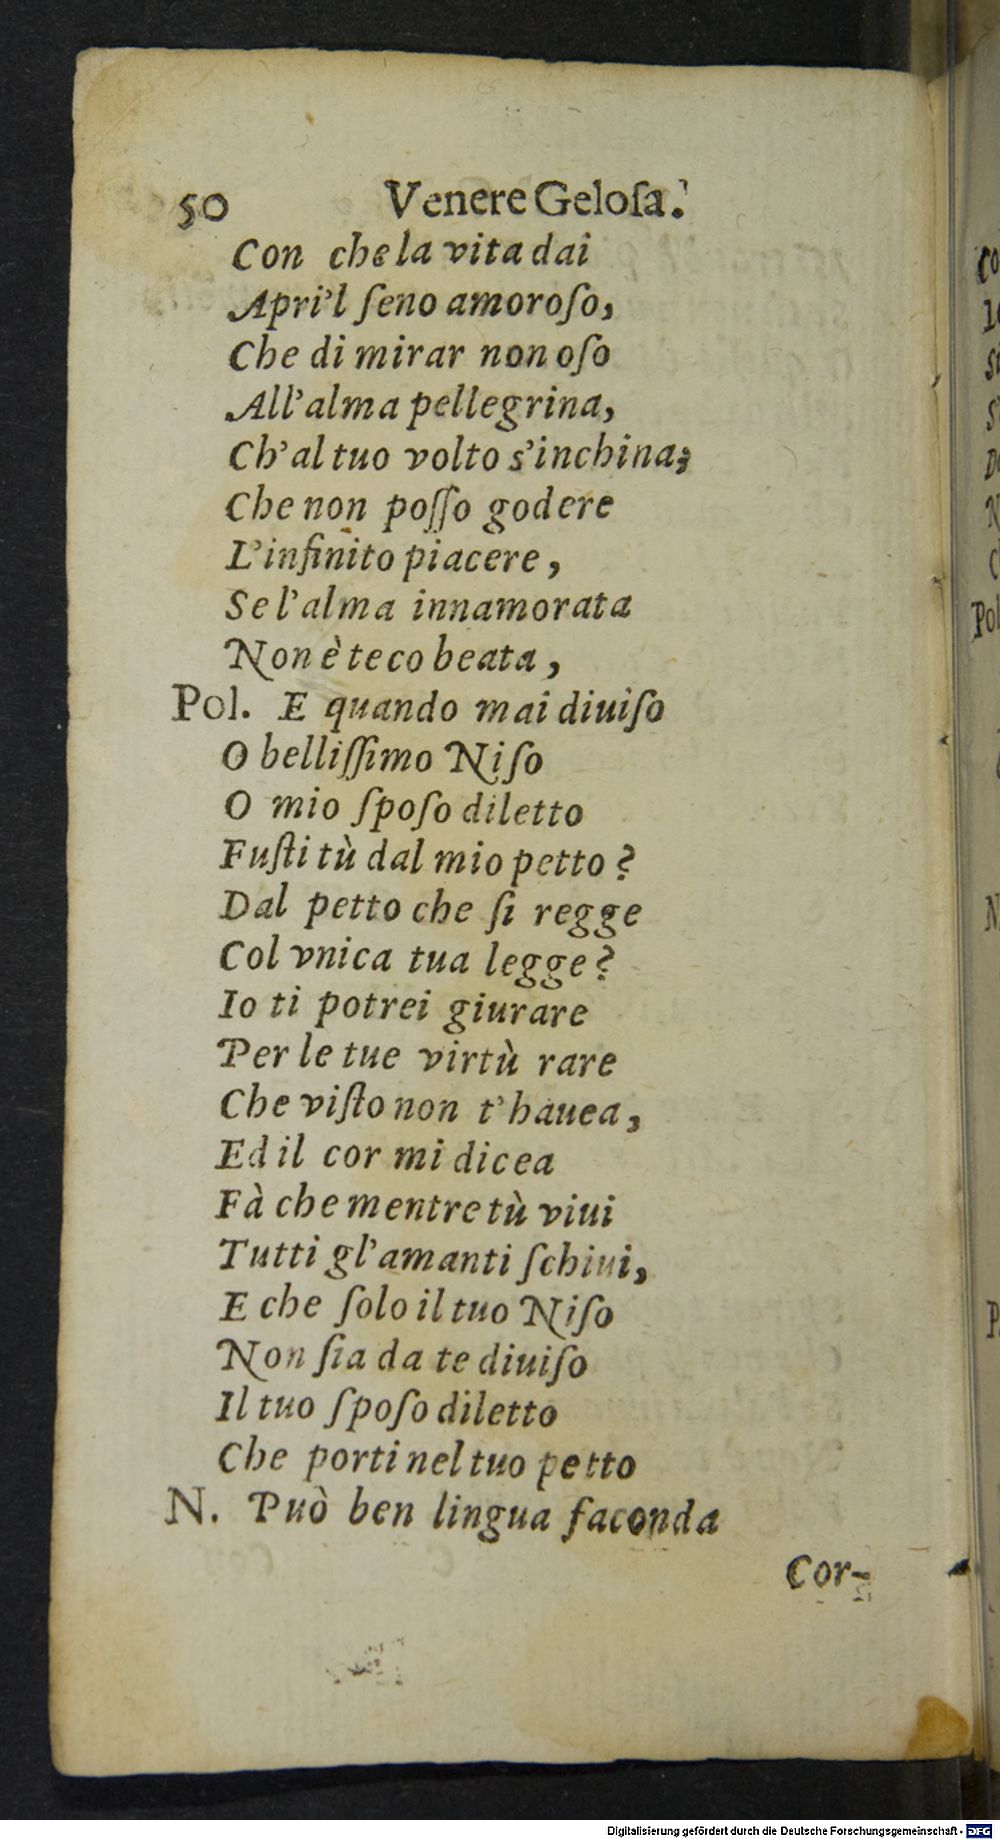 50 Venere Geloſa.
Con che la vita dai
Apri'l ſeno amoroſo,
Che di mirar non oſo
All'alma pellegrina,
Ch'al tuo volto s'inchina;
Che non poſſo godere
L'infinito piacere,
Se l'alma innamorata
Non è teco beata,
Pol. E quando mai diuiſo
O belliſſimo Niſo
O mio ſpoſo diletto
Fuſti tù dal mio petto?
Dal petto che ſi regge
Col vnica tua legge?
Io ti potrei giurare
Per le tue virtù rare
Che viſto non t'hauea,
Ed il cor mi dicea
Fà che mentre tù viui
Tutti gl'amanti ſchiui,
E che ſolo il tuo Niſo
Non ſia da te diuiſo
Il tuo ſpoſo diletto
Che porti nel tuo petto
N. Può ben lingua faconda
Cor-
Digitalisierung gefördert durch die Deutsche Forschungsgemeinschaft - DFG